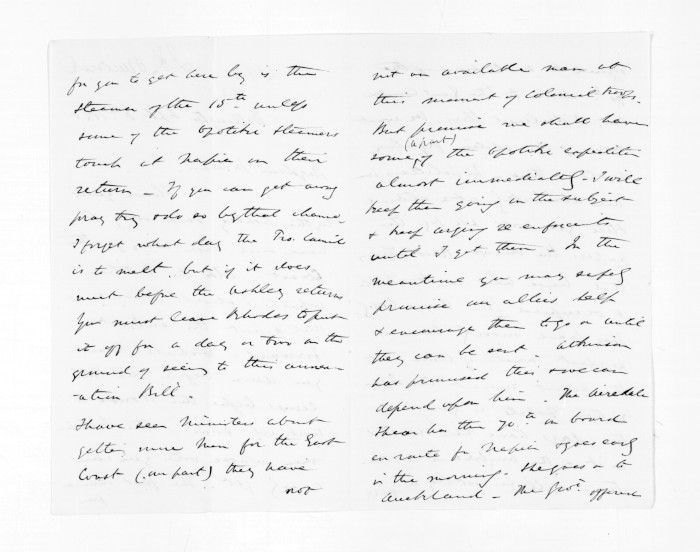 for you to get here by is the
Steamer of the 15th unless
some of the Opotiki Steamers
touch at Napier on their
return – If you can get away
pray try & do so by that chance
I forget what day the Pro. Council
is to meet, but if it does
meet before the Ashley returns
you must leave Rhodes to put
it off for a day or two on the
ground of seeing to this
-ation Bill.
I have seen Ministers about
getting more Men for the East
Coast (. part) they have
not
not an available man at
this moment of Colonial troops.
But promise we shall have
(a part)
some, of the Opotiki expedition
almost immediately – I will
keep them going on the subject
& keep urging re enforcents
until I get them – In the
meantime you may safely
promise our allies help
& encourage them to go on until
they can be sent – Atkinson
has promised this & we can
depend upon him. The Airedale
I hear has the 70th on board
en route for Napier & goes early
in the morning – She goes on to
Auckland – The Govt. offered